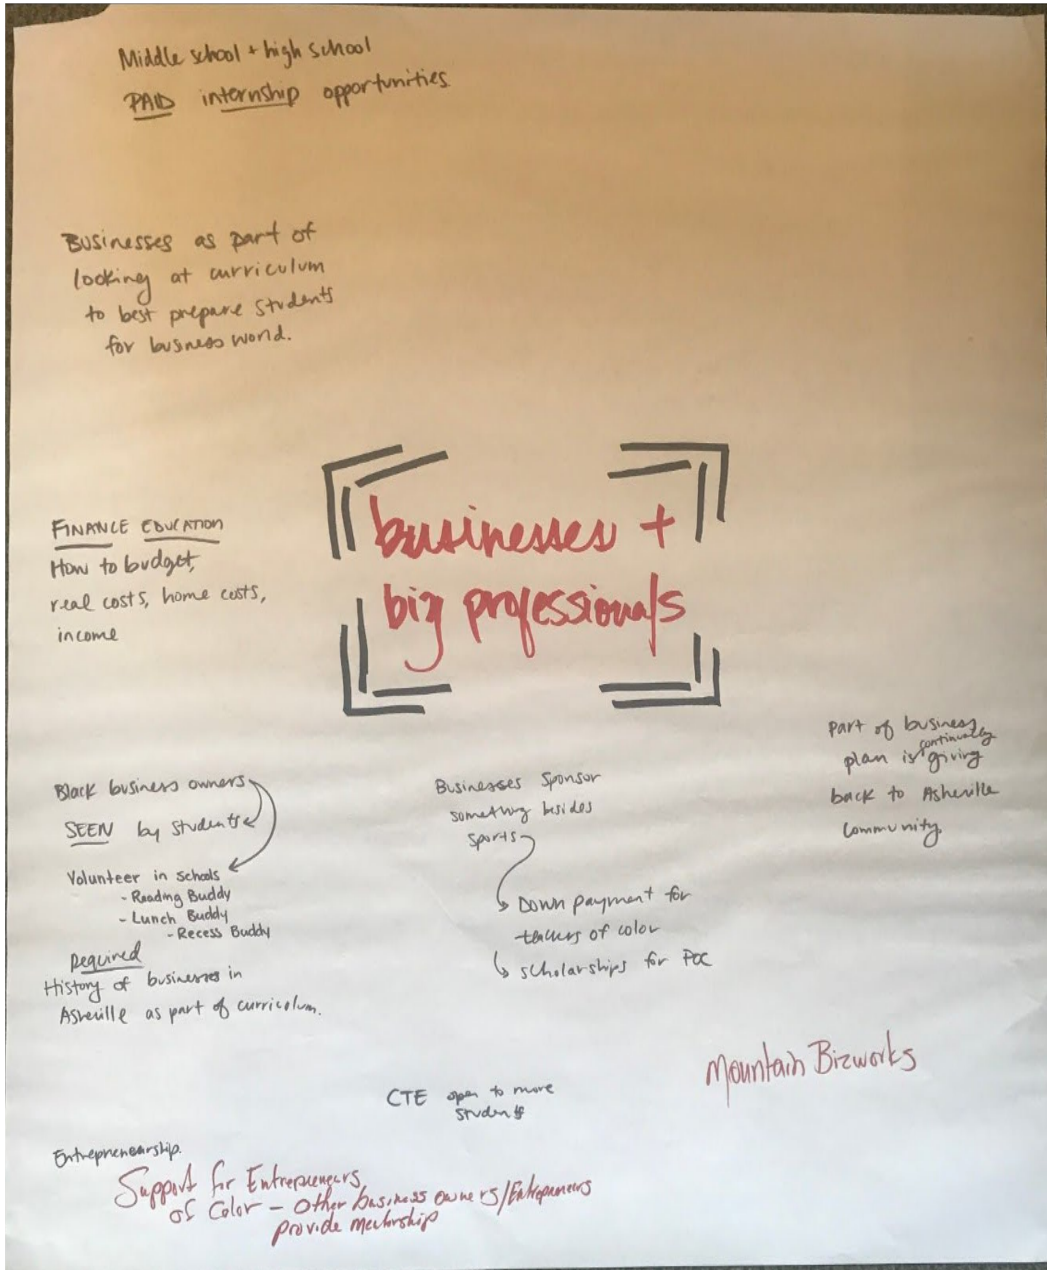 Middle school + high school
PAID internship opportunities
Businesses as part of
looking at curriculum
to best prepare students
for business world.
FINANCE EDUCATION
How to budget,
real costs, home costs,
income
businesses +
biz professionals
Black business owners
SEEN by students
Volunteer in schools
- Reading Buddy
- Lunch Buddy
- Recess Buddy
Required
History of businesses in
Asheville as part of curriculum.
Businesses sponsor
something besides
sports
Down payment for
teachers of color
scholarships for POC
part of business
plan is continually giving
back to Asheville
community
Mountain Bizworks
CTE open to more
students
Entrepreneurship.
Support for Entrepreneurs
of Color - Other business owners/Entrepreneurs
provide mentorship